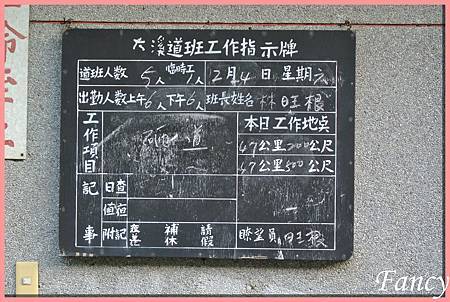 大溪道班工作指示牌
道班人數 5人 臨時工 人 2月4日 星期六
出勤人數 上午6人 下午6人 班長姓名 林旺根
工作項目 砸道 本日工作地點
47公里200公尺
47公里500公尺
記事
日查
值宿
附記 夜差 補休 請假 瞭望員 旺根
Fancy